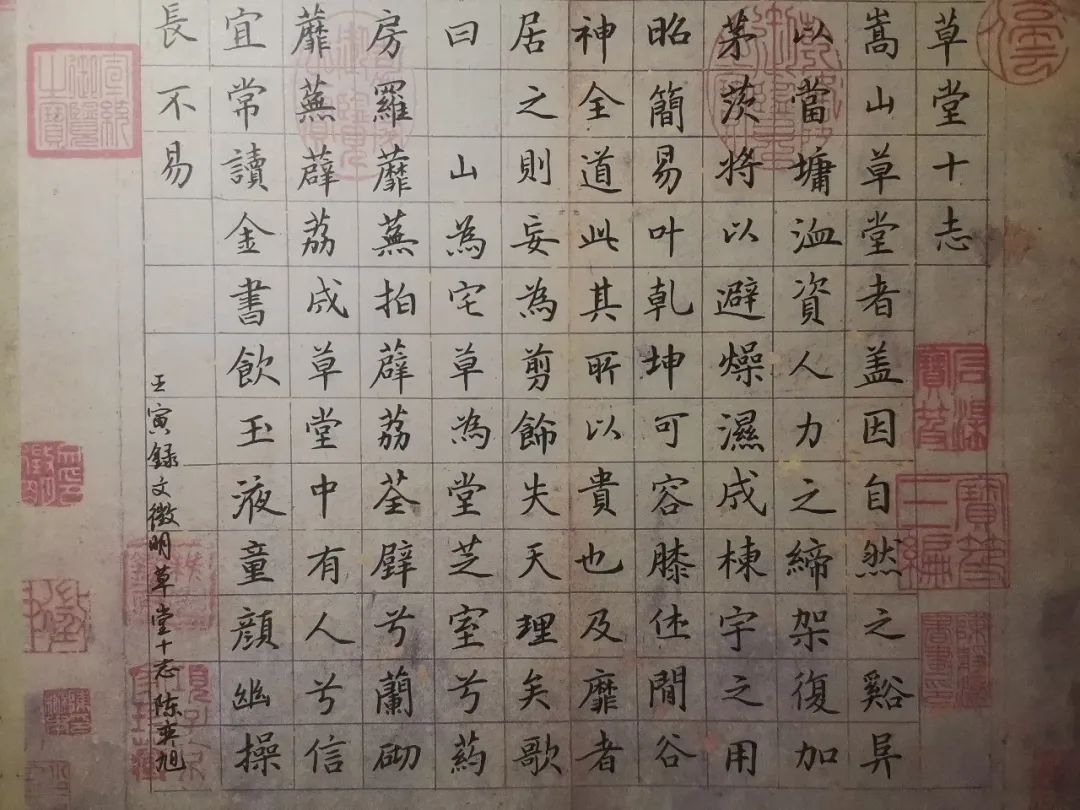 停云
草堂十志
嵩山草堂者盖因自然之谿异
以當墉洫資人力之締架復加
茅茨將以避燥濕成棟宇之用
昭簡易叶乾坤可容膝休閒谷
神全道此其所以貴也及靡者
居之則妄為剪飾失天理矣歌
曰 山為宅草為堂芝室兮葯
房羅蘼蕪拍薜荔荃壁兮蘭砌
蘼蕪薜荔成草堂中有人兮信
宜常讀金書飲玉液童顏幽操
長不易
壬寅録文徵明草堂十志陈奕旭
石渠寶笈
寶笈三編